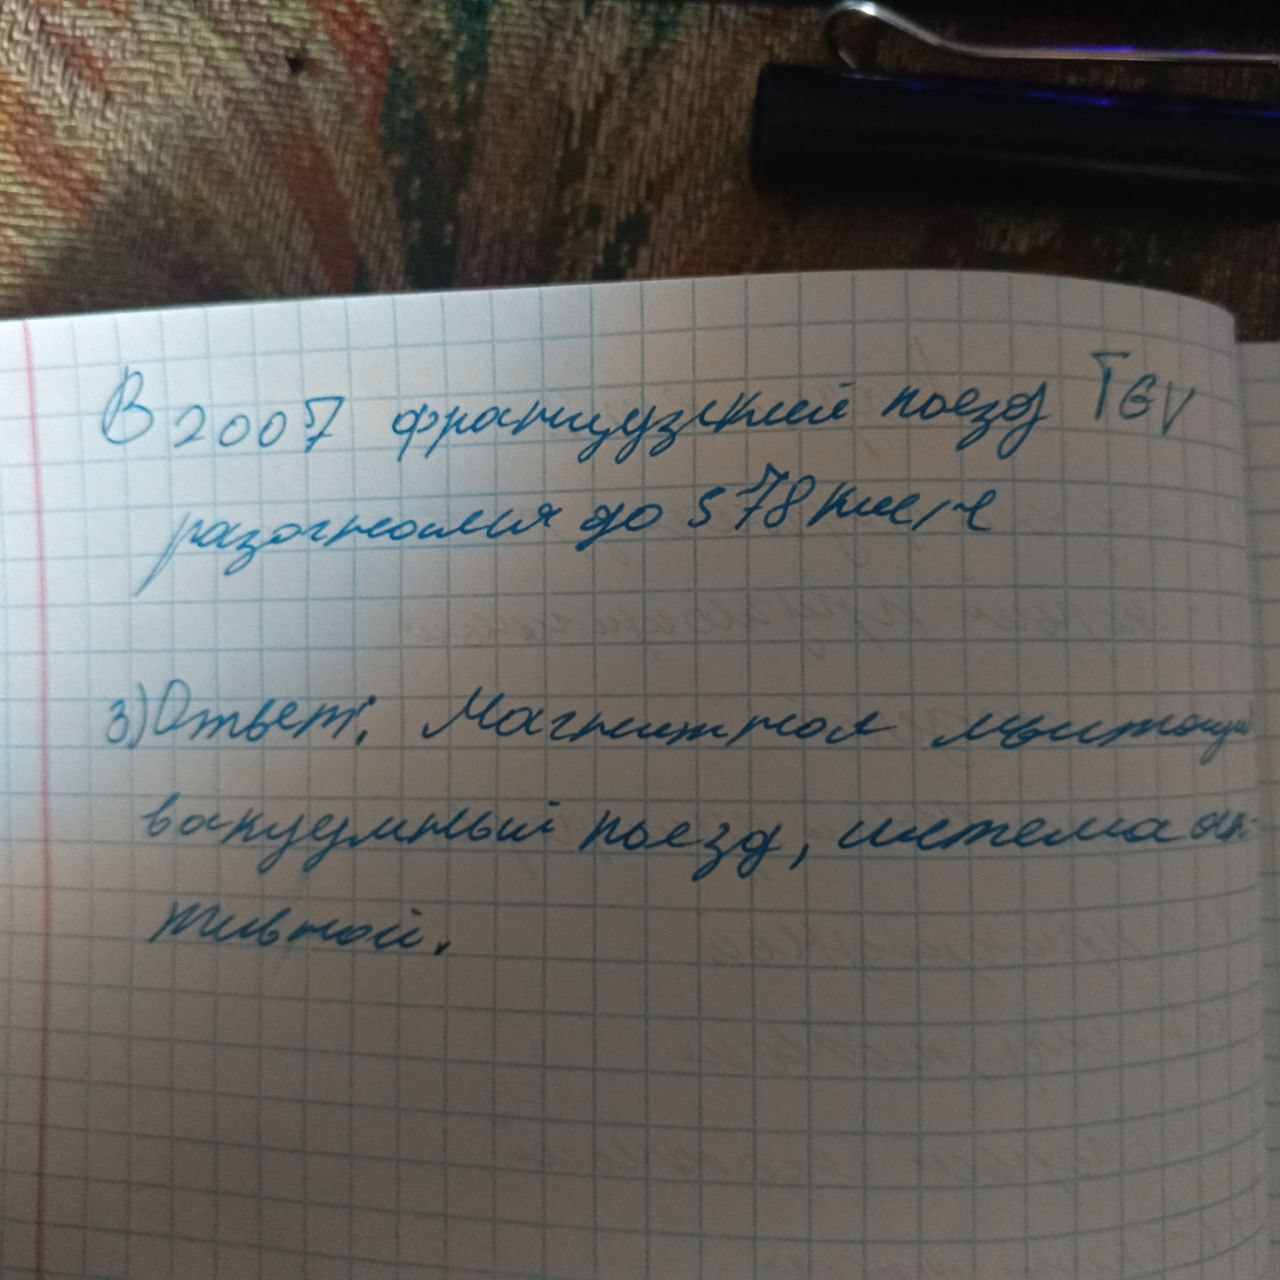 В 2007 французский поезд TGV
разогнался до 578 км/ч
3) Ответ: Магнитная
вакуумный поезд, система ак-
тивной.